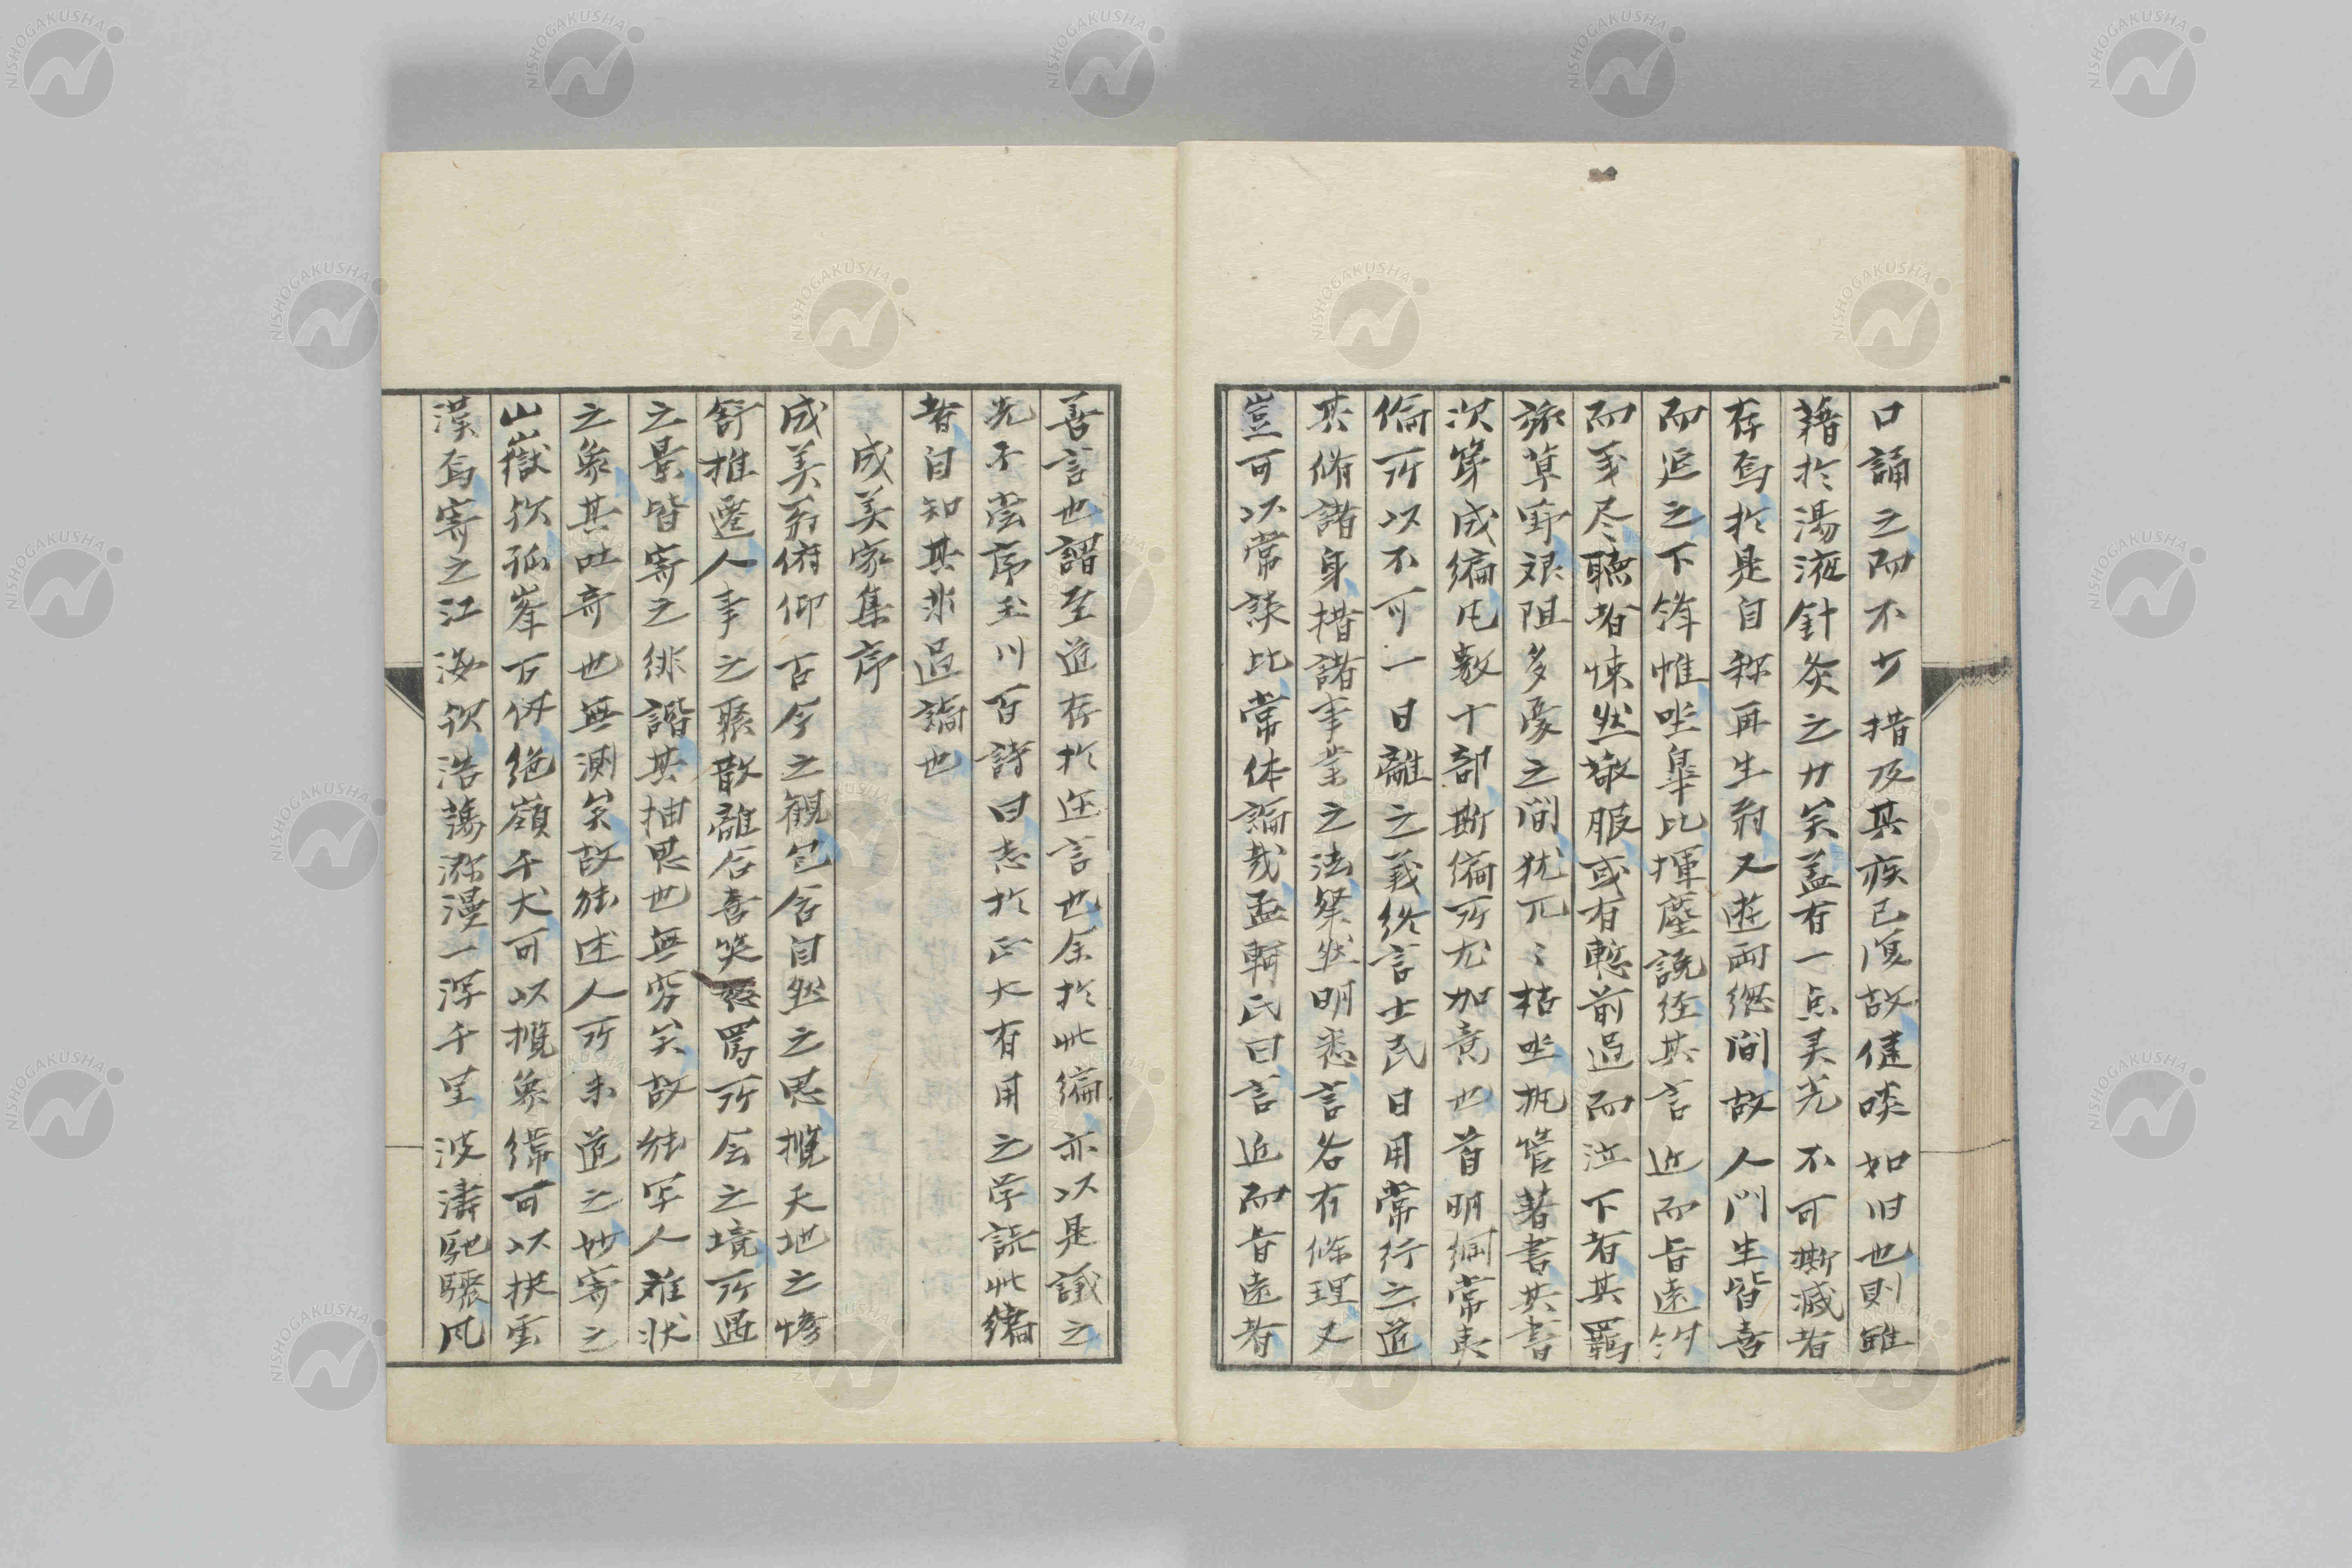 口誦之而不少措及其疾已復故健啖如旧也則雖
藉於湯液針灸之力矣蓋有一点灵光不可撕滅者
存焉於是自称再生翁又遊両総間故人門生皆喜
而延之下絳帷坐皐比揮麈説経其言近而旨遠
而手尽聴者悚然敬服或有慙前過而泣下者其羈
旅草野艱阻多憂之間猶兀〻枯坐執管著書其書
次第成編凡数十部斯編所尤加意也首明綱常夷
倫所以不可一日離之義終言士民日用常行之道
其脩諸身措諸事業之法粲然明悉言各有條理又
豈可以常談比常体論哉孟軻氏曰言近而旨遠者
善言也謂至道存於近言也余於此編亦以是議之
先子嘗序玉川百詩曰志於正大有用之学読此編
者自知其非過論也
成美家集序
成美翁俯仰古今之観包含自然之思攬天地之惨
舒推遷人事之聚散離合喜笑怒罵所会之境所遇
之景皆寄之俳諧其抽思也無窮矣故能写人難状
之象其吐奇也無測矣故能述人所未道之妙寄之
山嶽欤孤峯万仞絶嶺千丈可以攬象緯可以抉雲
漢焉寄之江海欤浩蕩瀰漫一浮千里波濤馳驟風
NISHOGAKUSHA